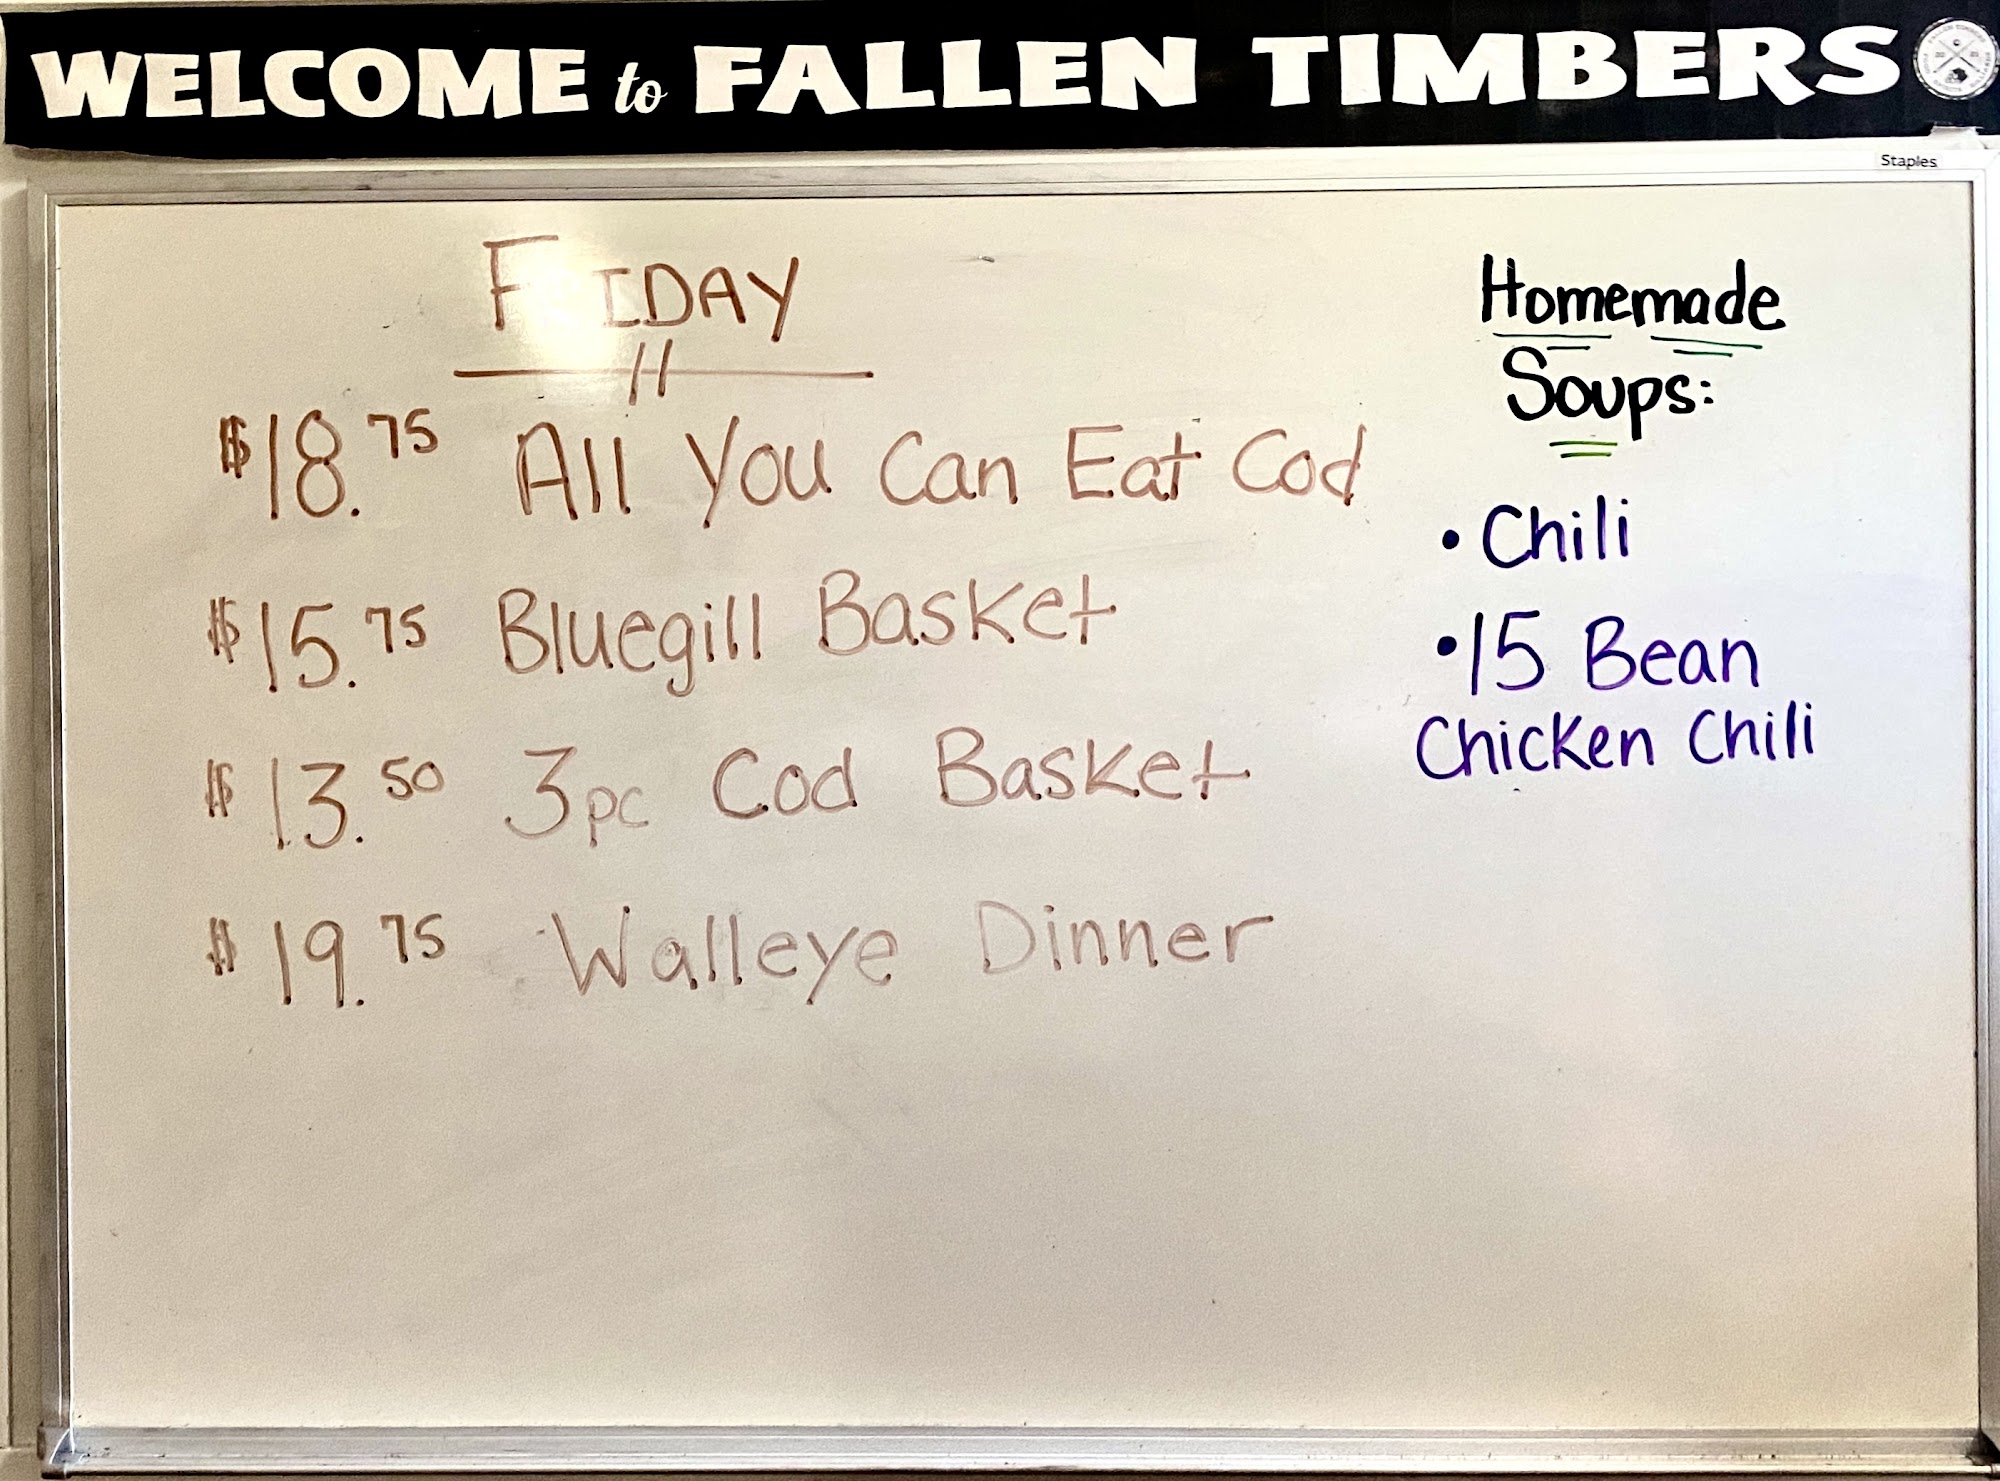 WELCOME to FALLEN TIMBERS
Staples
FRIDAY
$18.75 All You Can Eat Cod
$15.75 Bluegill Basket
$13.50 3pc Cod Basket
$19.75 Walleye Dinner
Homemade
Soups:
• Chili
• 15 Bean
Chicken Chili